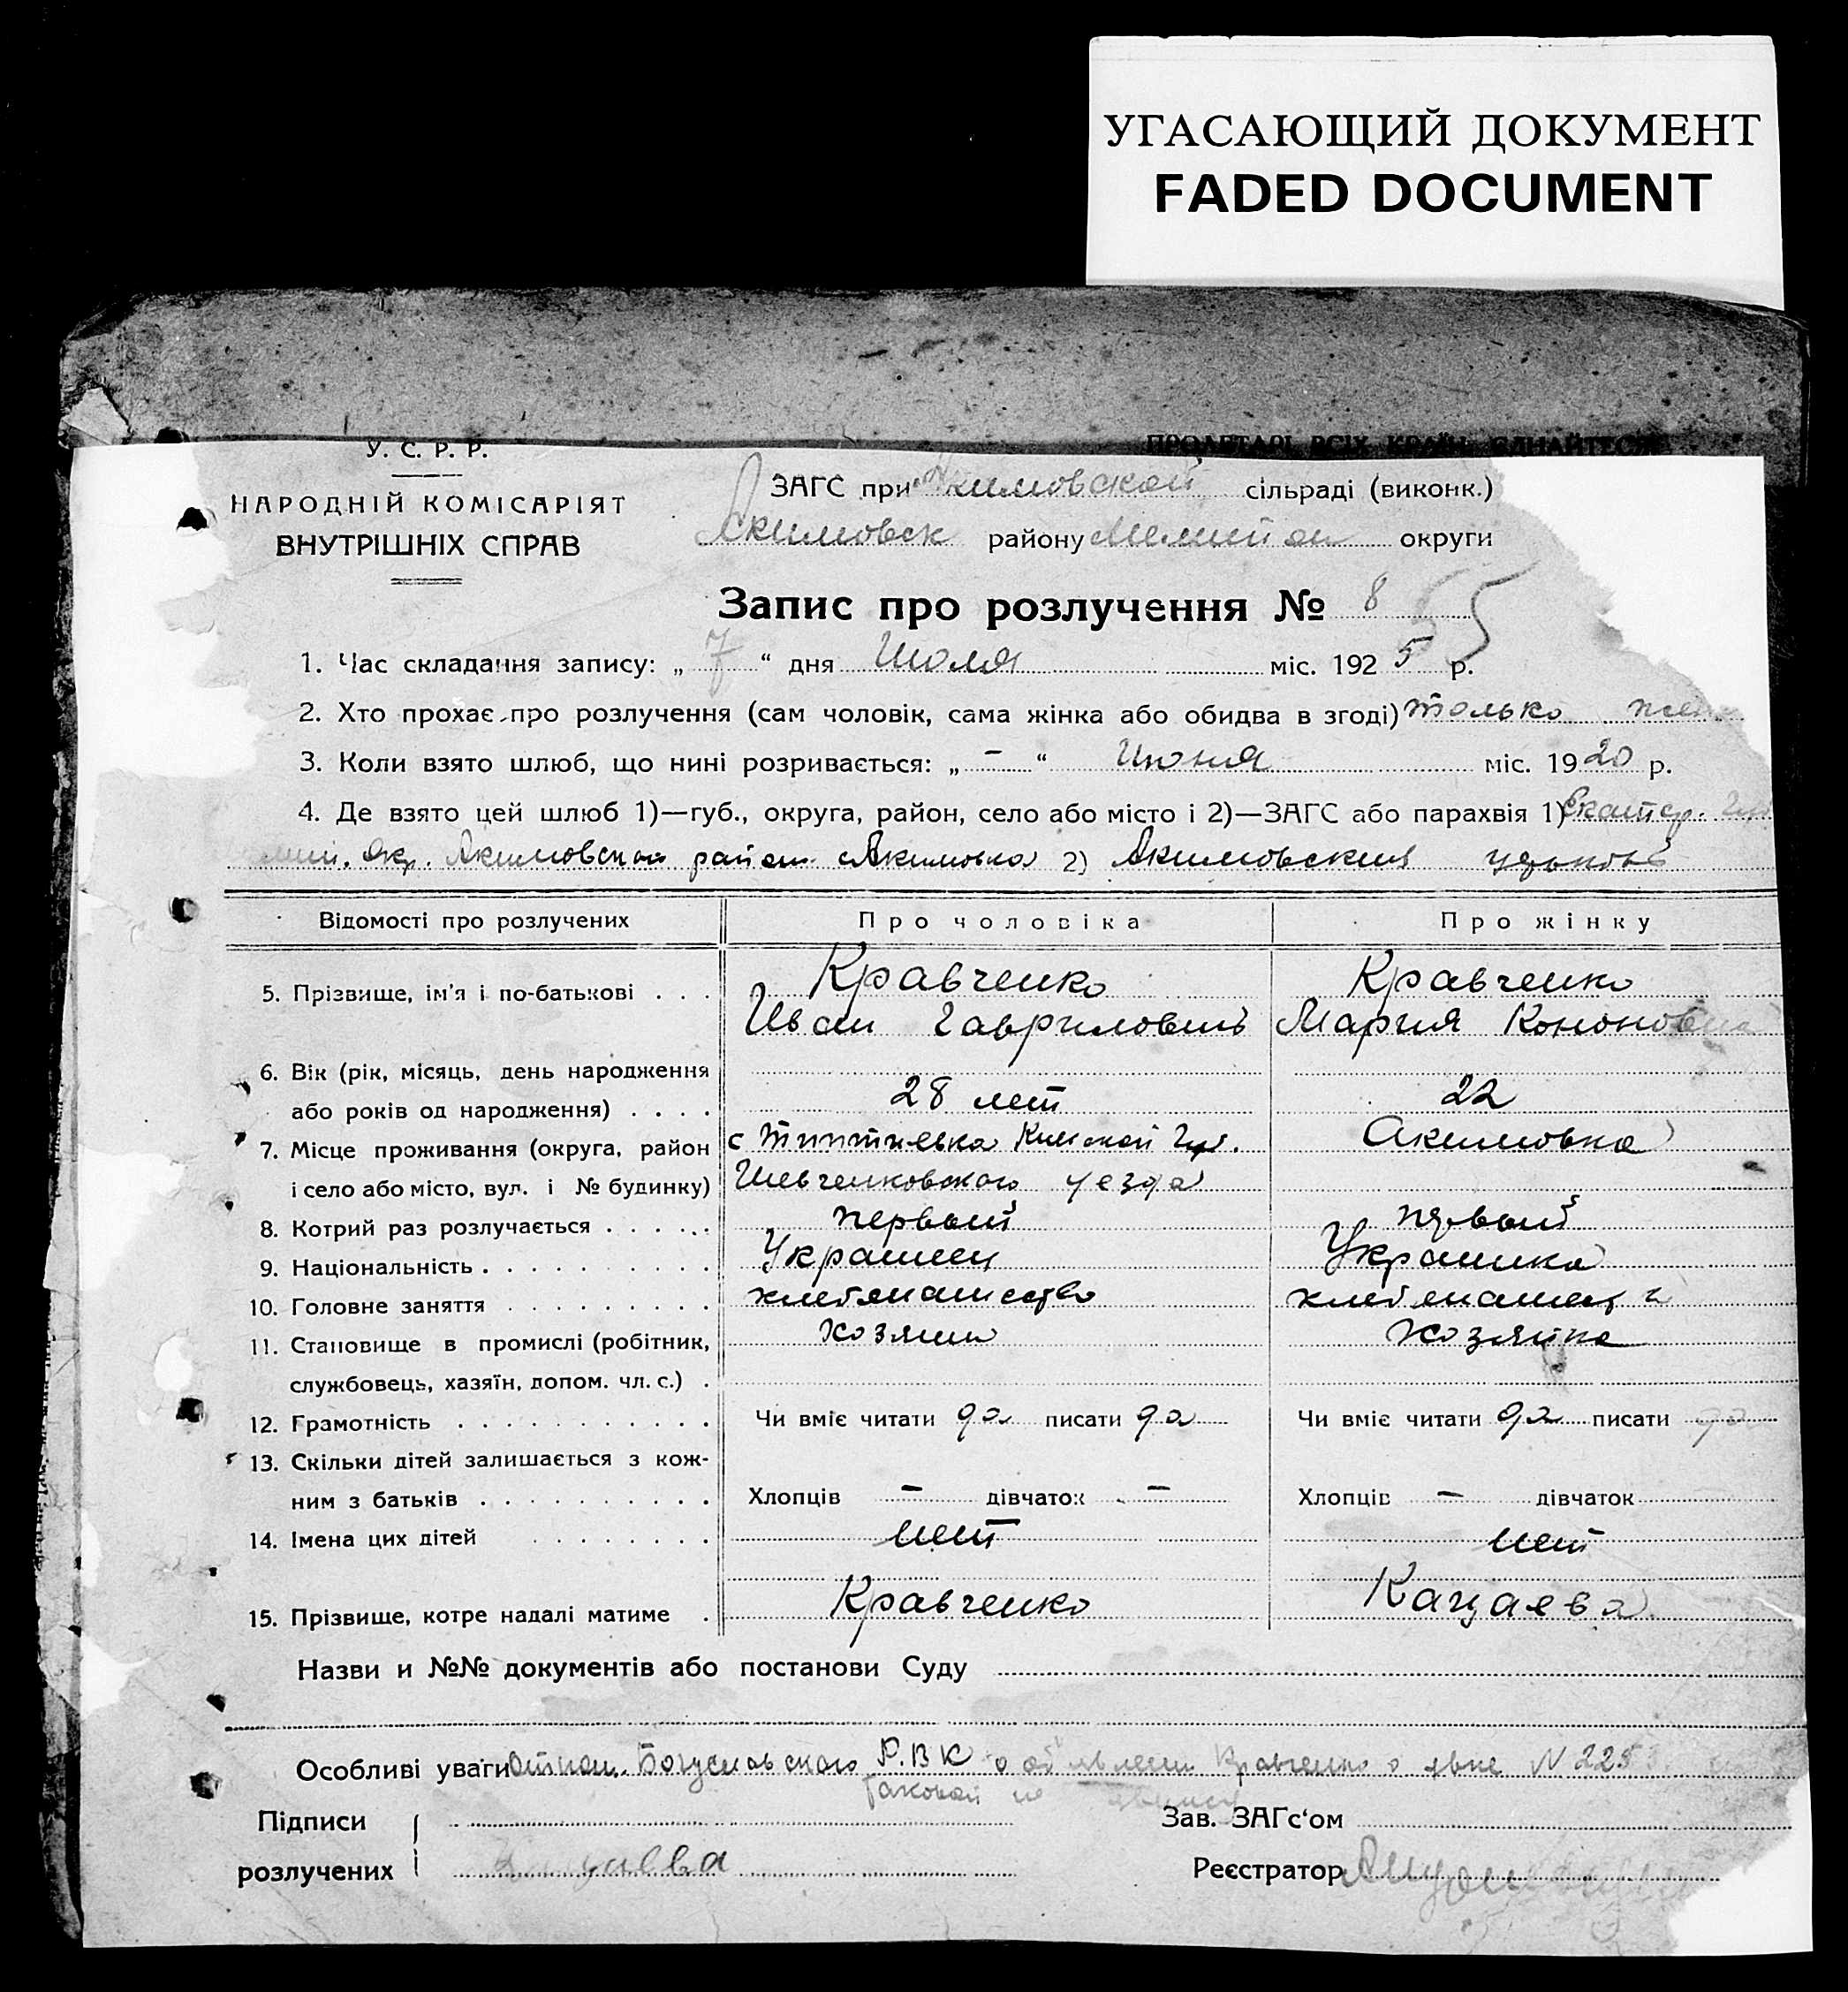 УГАСАЮЩИЙ ДОКУМЕНТ
FADED DOCUMENT
У. С. Р. Р.
ПРОЛЕТАРІ ВСІХ КРАЇН, ЄДНАЙТЕСЯ
НАРОДНІЙ КОМІСАРІЯТ
ВНУТРІШНІХ СПРАВ
ЗАГС при Акимовской сільраді (виконк.)
Акимовск району Мелитоп округи
Запис про розлучення № 8
1. Час складання запису: „ 7 “ дня Июля міс. 1925 р.
2. Хто прохає про розлучення (сам чоловік, сама жінка або обидва в згоді) только
3. Коли взято шлюб, що нині розривається: „ – “ Июня міс. 1920 р.
4. Де взято цей шлюб 1)—губ., округа, район, село або місто і 2)—ЗАГС або парахвія 1) Екатер.
Окр. Акимовского район с Акимовка 2) Акимовский
Відомості про розлучених
Про чоловіка
Про жінку
5. Прізвище, ім'я і по-батькові . . .
Кравченко
Иван Гаврилович
Кравченко
Мария Кононовна
6. Вік (рік, місяць, день народження
або років од народження) . . . .
28 лет
22
7. Місце проживання (округа, район
і село або місто, вул. і № будинку)
с Киевской Губ.
Шевченковского уезда
Акимовка
8. Котрий раз розлучається . . . . .
первый
первый
9. Національність . . . . . . . . . .
Украинец
Украинка
10. Головне заняття . . . . . . . . .
хлебопашество
11. Становище в промислі (робітник,
службовець, хазяїн, допом. чл. с.) .
хозяин
хозяйка
12. Грамотність . . . . . . . . . . .
Чи вміє читати да писати да
Чи вміє читати да писати да
13. Скільки дітей залишається з кож-
ним з батьків . . . . . . . . . .
Хлопців – дівчаток –
Хлопців – дівчаток
14. Імена цих дітей . . . . . . . .
нет
нет
15. Прізвище, котре надалі матиме .
Кравченко
Кацаева
Назви и №№ документів або постанови Суду
Особливі уваги Богуславского Р.В.К о Кравченко о явке N 225
Таковой не явился
Підписи
розлучених
Зав. ЗАГс‘ом
Реєстратор